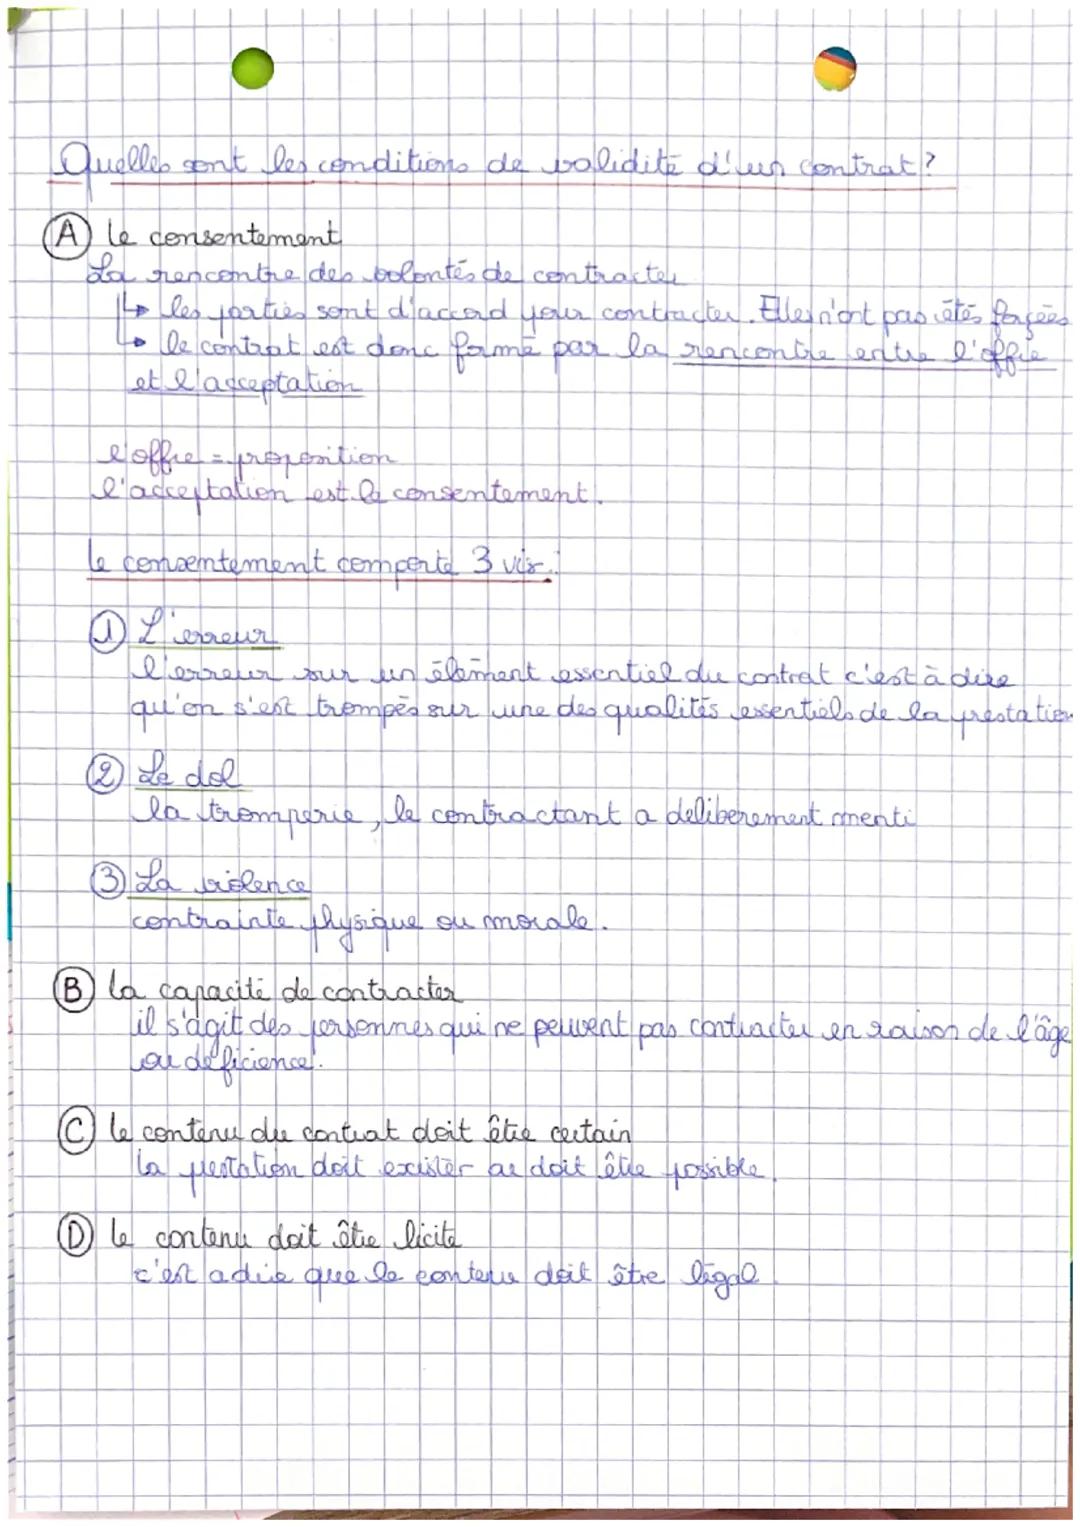 Quelles sont les conditions de validité d'un contrat ?
A le consentement
La rencontre des volontés de contracter
↳ les parties sont d'accord pour contracter. Elles n'ont pas étés forçées
↳ le contrat est donc formé par la rencontre entre l'offre
et l'acceptation
l'offre = proposition
l'acceptation est le consentement.
le consentement comporte 3 vis.
1 L'erreur
l'erreur sur un élément essentiel du contrat c'est à dire
qu'on s'est trompés sur une des qualités essentiels de la prestation
2 Le dol
la tromperie, le contractant a deliberement menti
3 La violence
contrainte physique ou morale.
B la capacité de contracter
il s'agit des personnes qui ne peuvent pas contracter en raison de l'âge
ou déficience.
C le contenu du contrat doit être certain
la prestation doit exister ou doit être possible.
D le contenu doit être licite
c'est adire que le contenu doit être légal.